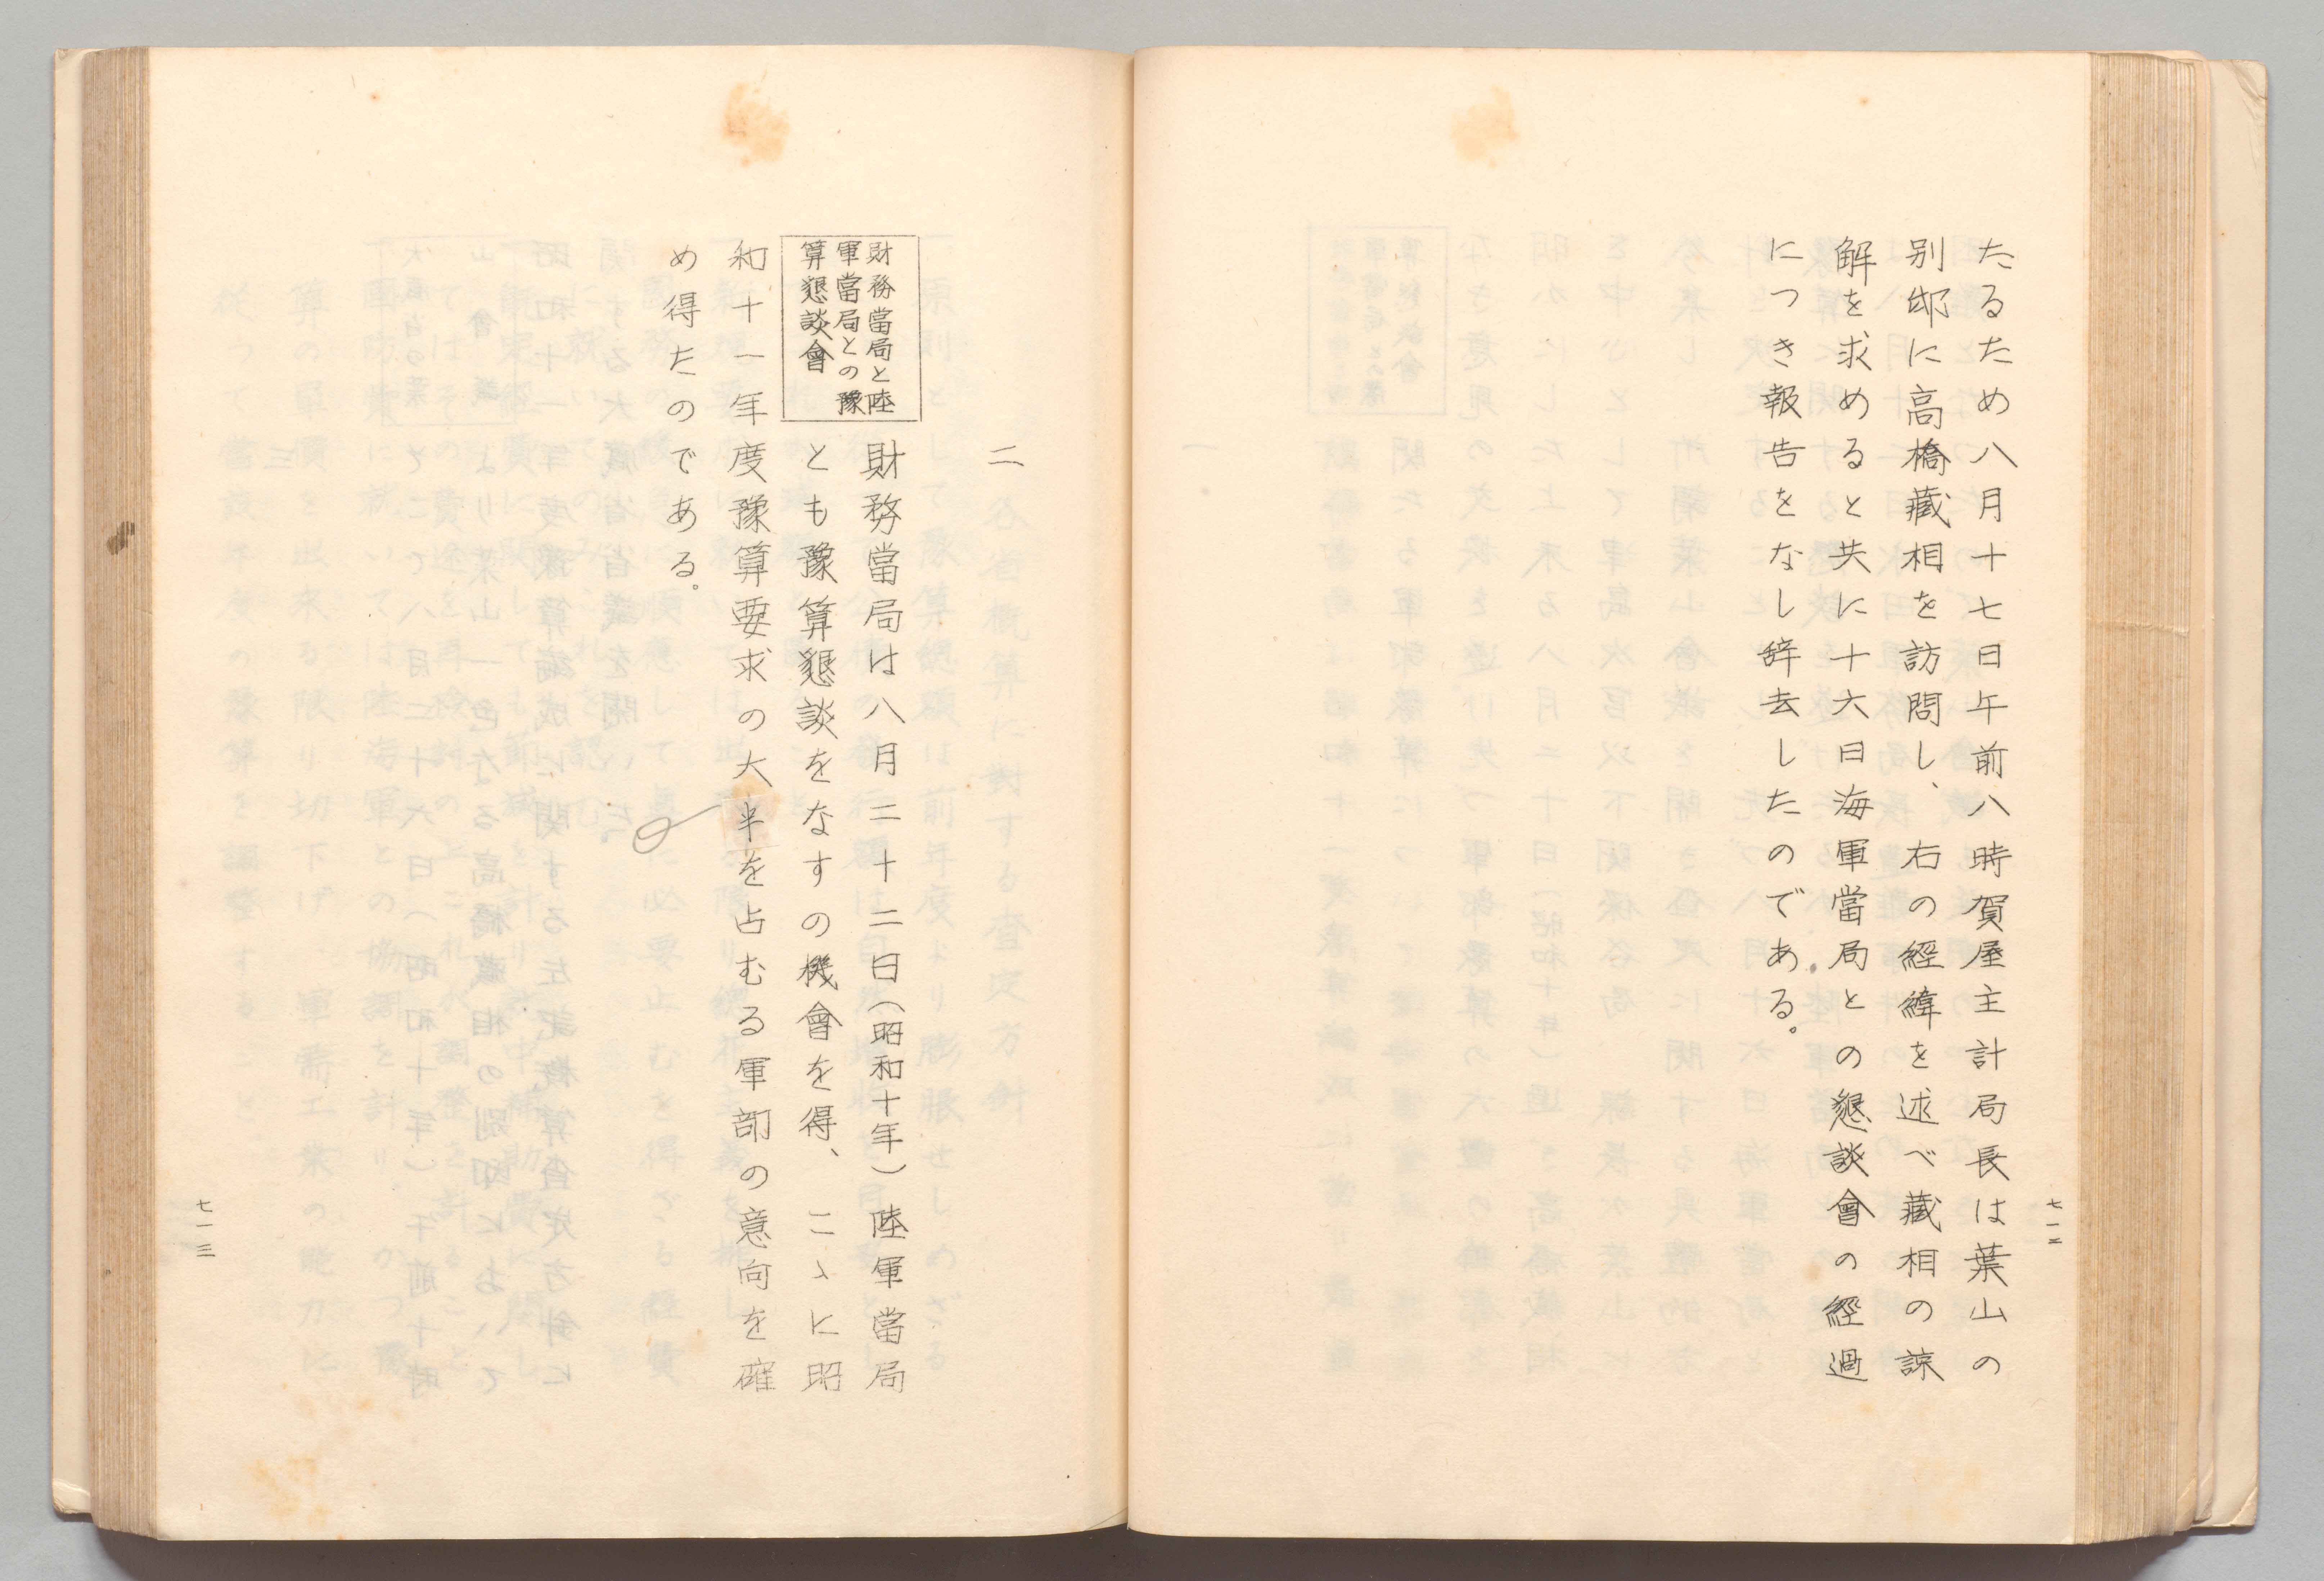 たるため八月十七日午前八時賀屋主計局長は葉山の
別邸に高橋藏相を訪問し、右の經緯を述べ藏相の諒
解を求めると共に十六日海軍當局との懇談會の經過
につき報告をなし辞去したのである。
七一二
二
財務當局と陸
軍當局との豫
算懇談會
財務當局は八月二十二日(昭和十年)陸軍當局
とも豫算懇談をなすの機會を得、こゝに昭
和十一年度豫算要求の大半を占むる軍部の意向を確
め得たのである。
七一三